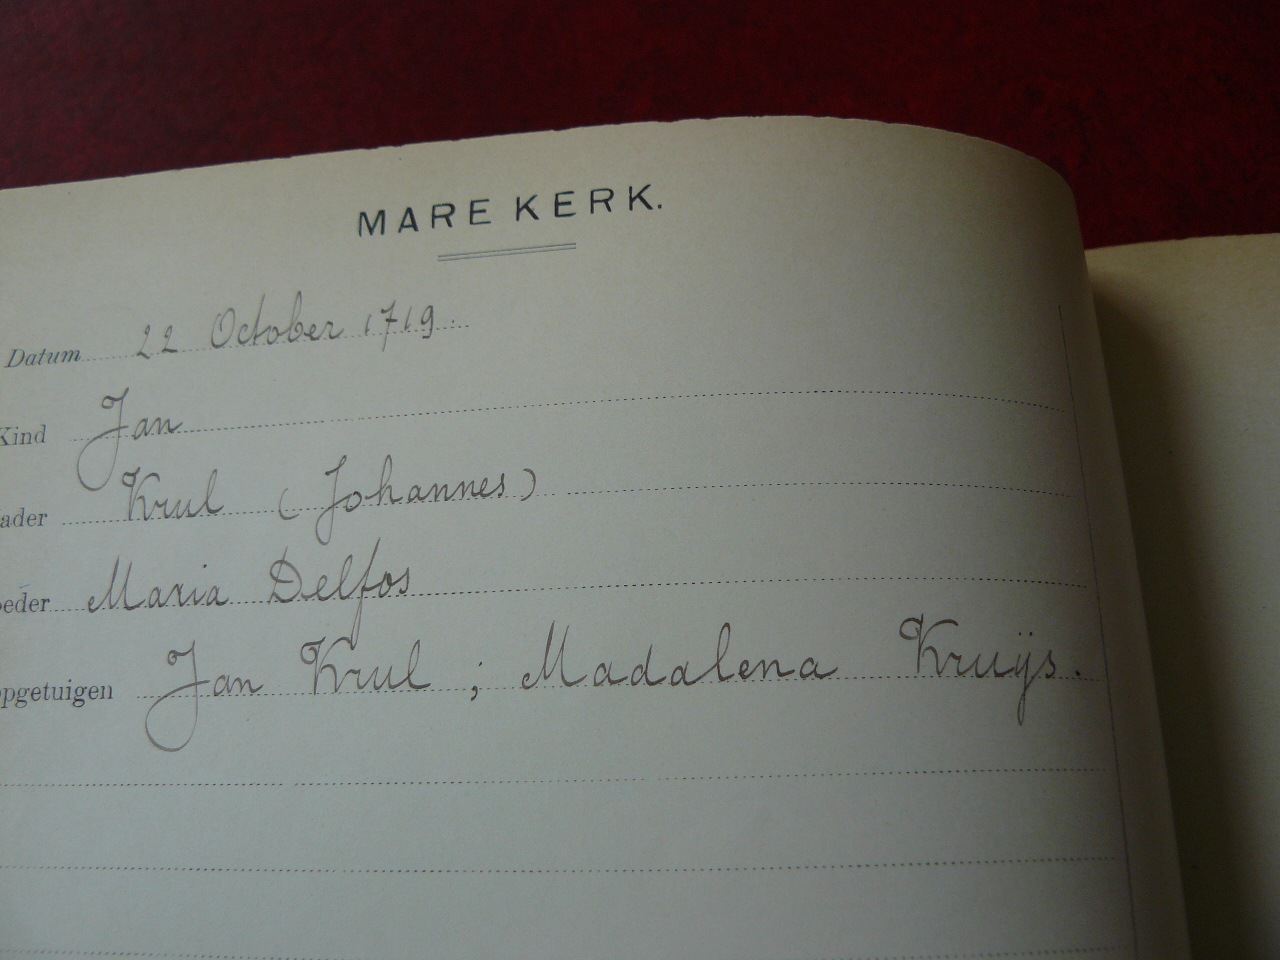 MARE KERK.
Datum 22 October 1719.
Kind Jan
ader Krul (Johannes)
oeder Maria Delfos
opgetuigen Jan Krul ; Madalena Kruÿs.